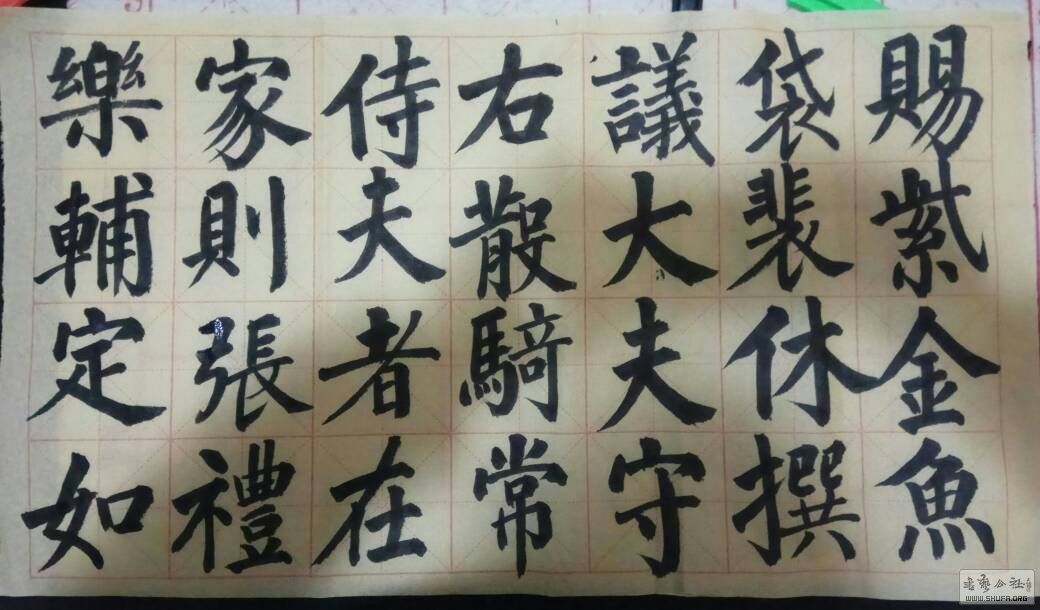 賜紫金魚
袋裴休撰
議大夫守
右散騎常
侍夫者在
家則張禮
樂輔定如
WWW.SHUFA.ORG